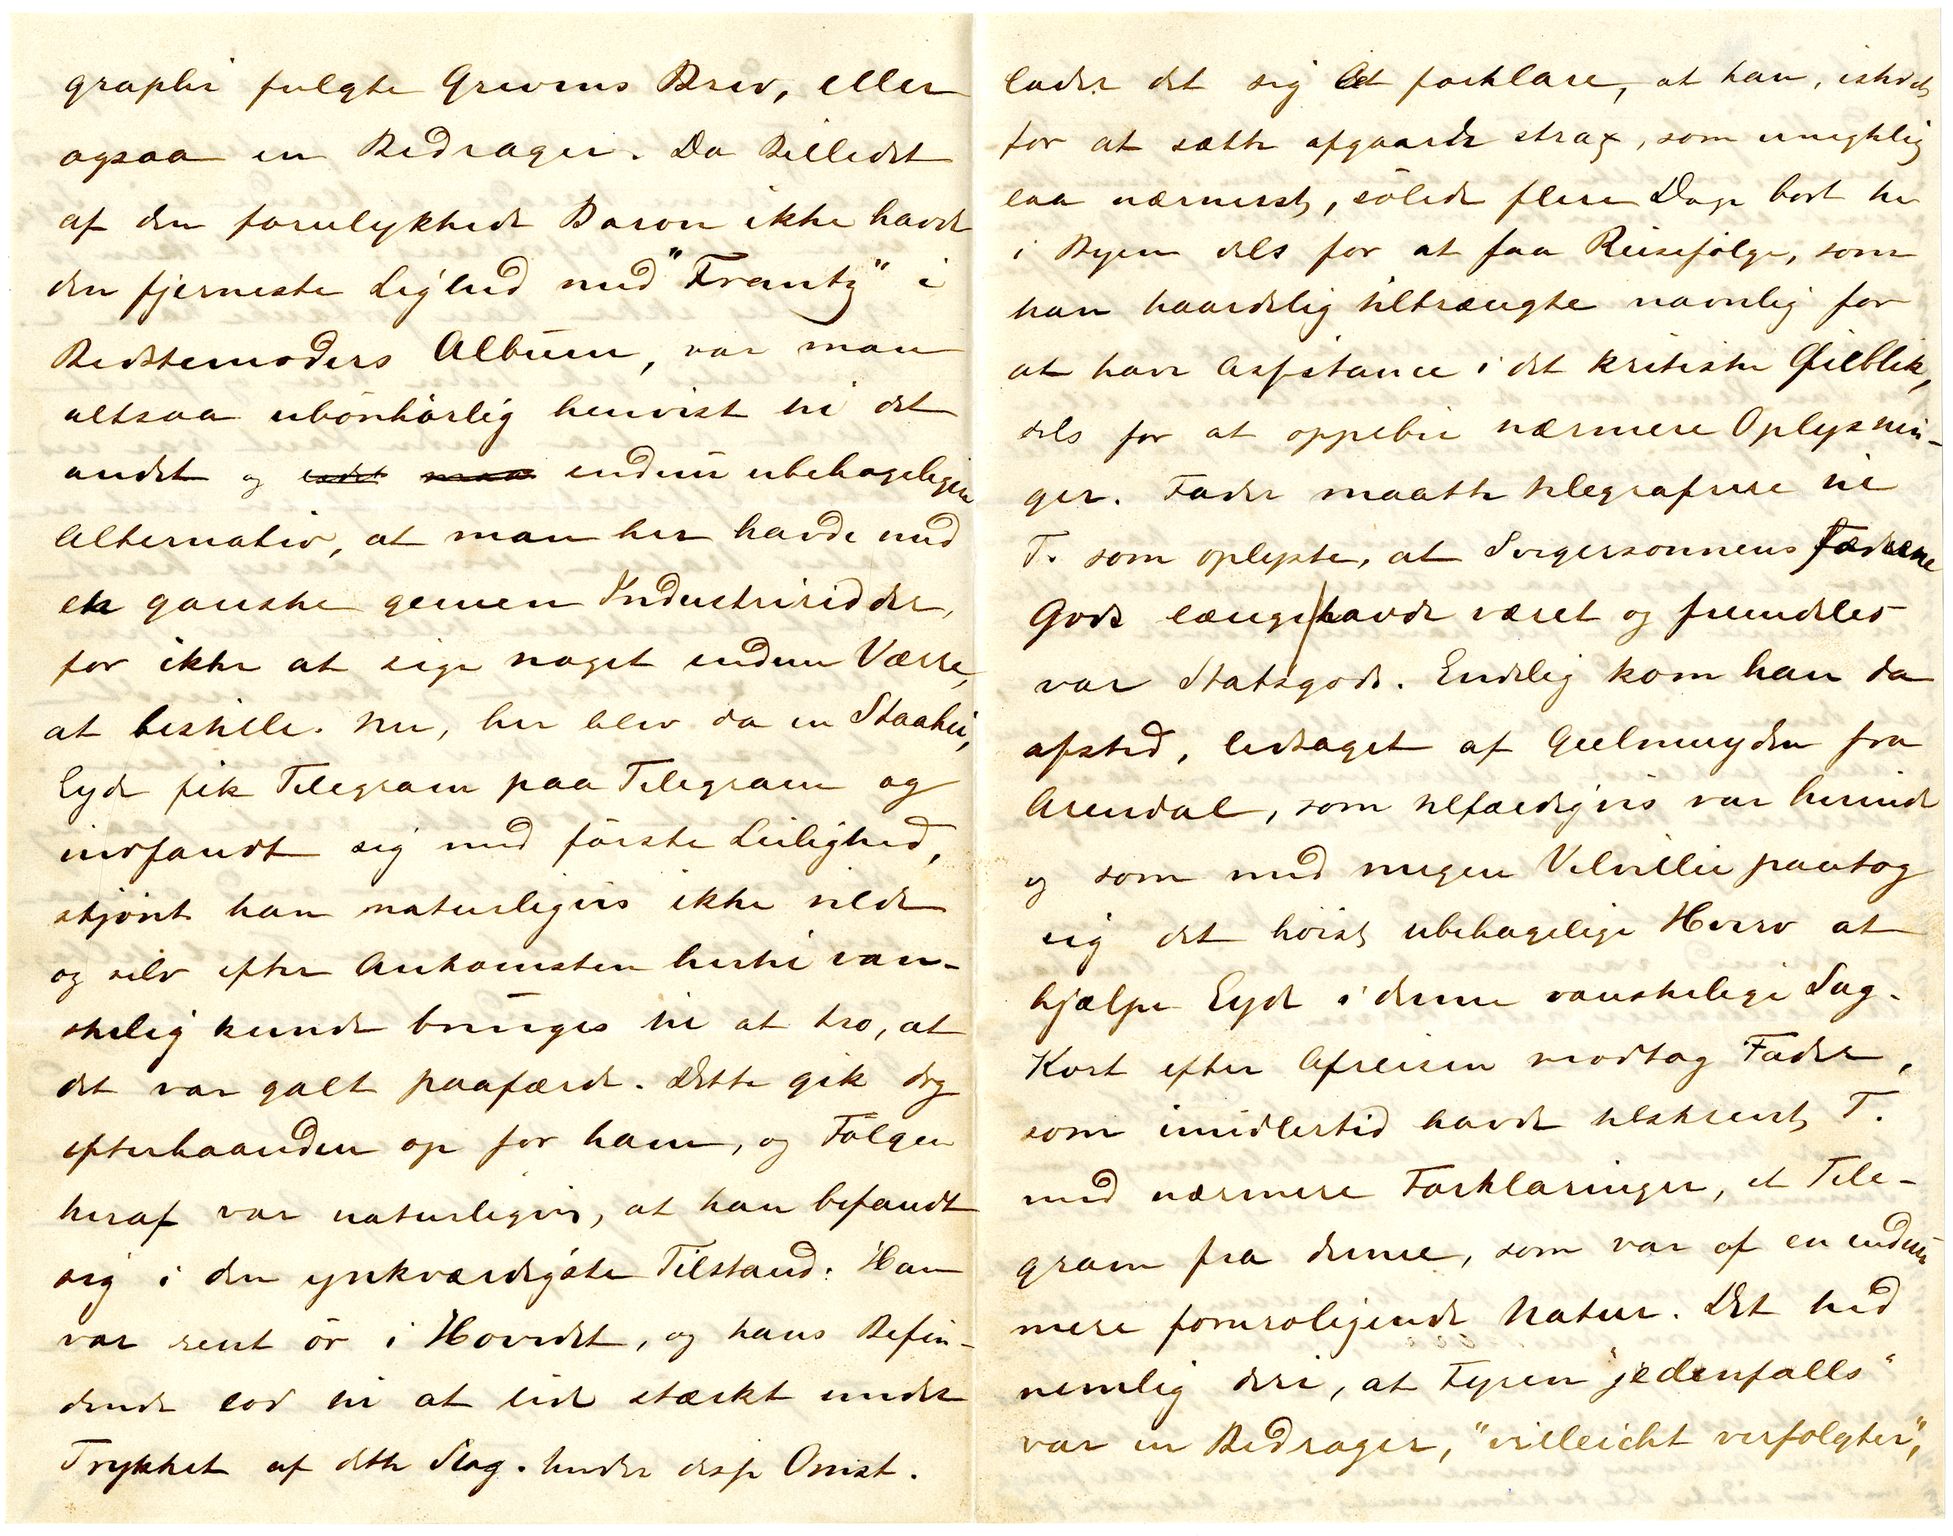 graphi fulgte Grevens Brev, eller
ogsaa en Bedrager. Da Billedet
af den forulykkede Baron ikke havde
den fjerneste Lighed med "Frantz" i
Bedstemoders Album, var man
altsaa ubönhörlig henvist til det
andet og endnu ubehageligere
Alternativ, at man her havde med
en ganske gemen Industriridder,
for ikke at sige noget endnu Værre,
at bestille. Nu, her blev da en Staahei,
Eyde fik Telegram paa Telegram og
indfandt sig med förste Leilighed,
skjönt han naturligvis ikke vilde
og selv efter Ankomsten hertil van-
skelig kunde bringes til at tro, at
det var galt paafærde. Dette gik dog
efterhaanden op for ham, og Fölgen
heraf var naturligvis, at han befandt
sig i den ynkværdigste Tilstand: Han
var rent ör i Hovedet, og hans Befin-
dende lod til at lide stærkt under
Trykket af dette Slag. Under disse Omst.
lader det sig let forklare, at han, istedet
for at sætte afgaarde strax, som unegtelig
laa nærmest, sölede flere Dage bort her
i Byen dels for at faa Reisefölge, som
han haardelig tiltrængte navnlig for
at have Assistance i det kritiske Öieblik,
dels for at oppebie nærmere Oplysnin-
ger. Fader maatte telegrafere til
T. som oplyste, at Svigersonnens Fædrene
Gods længe havde været og fremdeles
var Statsgods. Endelig kom han da
afsted, ledsaget af Geelmuyden fra
Arendal, som tilfældigvis var herinde
og som med megen Velvillie paatog
sig det höist ubehagelige Hverv at
hjælpe Eyde i denne vanskelige Sag.
Kort efter Afreisen modtog Fader,
som imidlertid havde tilskrevet T.
med nærmere Forklaringer, et Tele-
gram fra denne, som var af en endnu
mere foruroligende Natur. Det hed
nemlig deri, at Fyren "jedenfalls"
var en Bedrager, "vielleicht verfolgter",